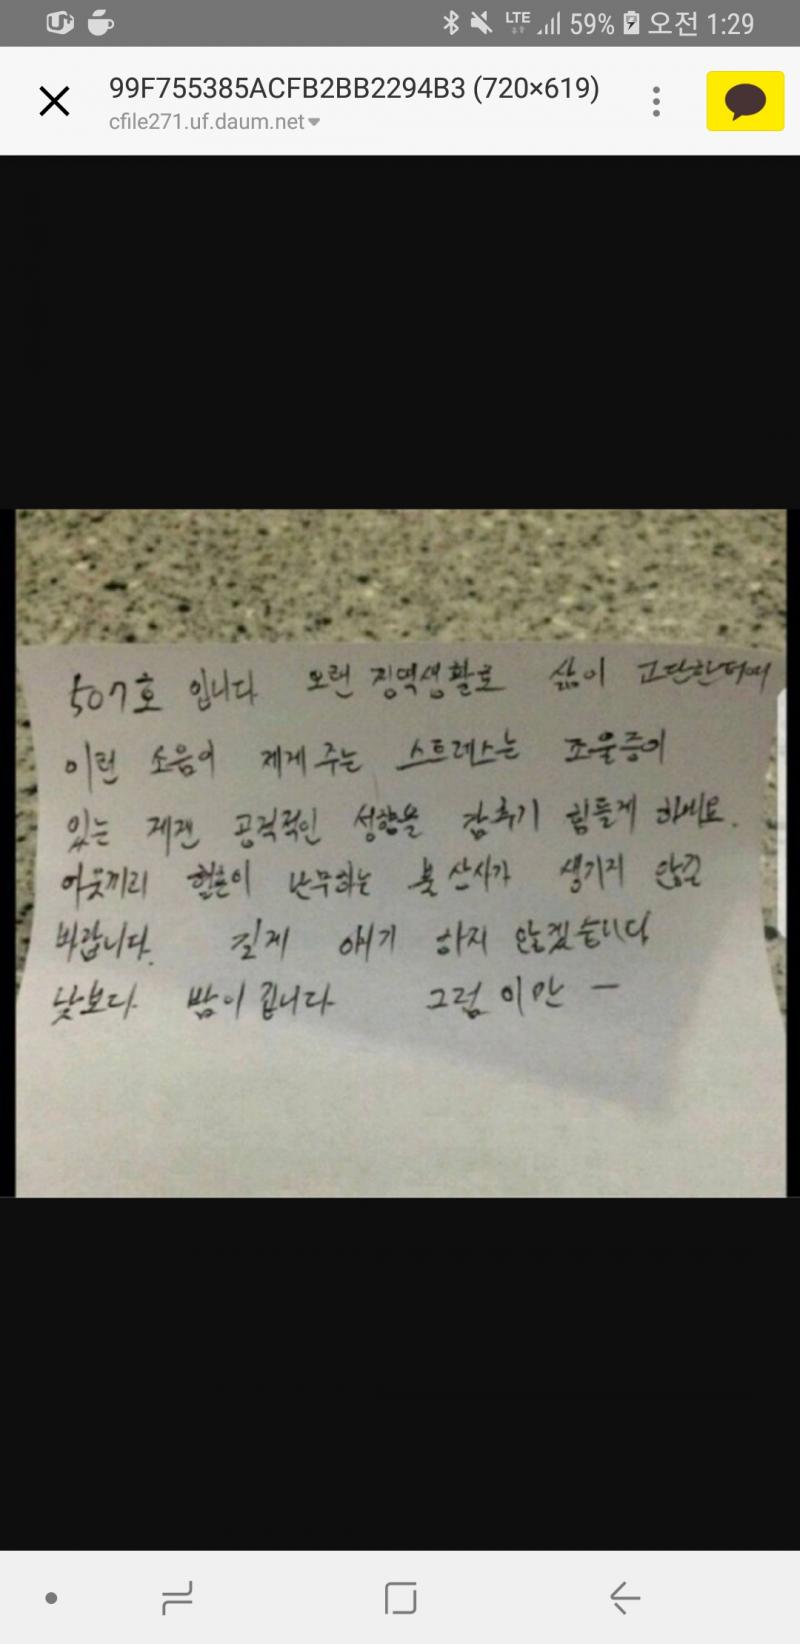 LTE 59% 오전 1:29
99F755385ACFB2BB2294B3 (720×619)
cfile271.uf.daum.net
507호 입니다 오랜 징역생활로 삶이 고단한터에
이런 소음이 제게 주는 스트레스는 조울증이
있는 제겐 공격적인 성향을 감추기 힘들게 하네요.
이웃끼리 혈흔이 난무하는 불상사가 생기지 않길
바랍니다. 길게 얘기 하지 않겠습니다
낮보다 밤이 깁니다 그럼 이만 —